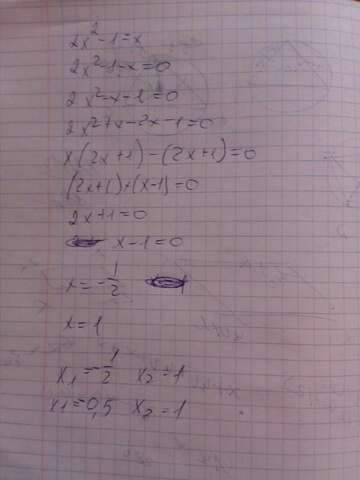 2x²-1=x
2x²-1-x=0
2x²-x-1=0
2x²+x-2x-1=0
x(2x+1)-(2x+1)=0
(2x+1)·(x-1)=0
2x+1=0
x-1=0
x=-1/2
x=1
x₁=-1/2 x₂=1
x₁=0,5 x₂=1